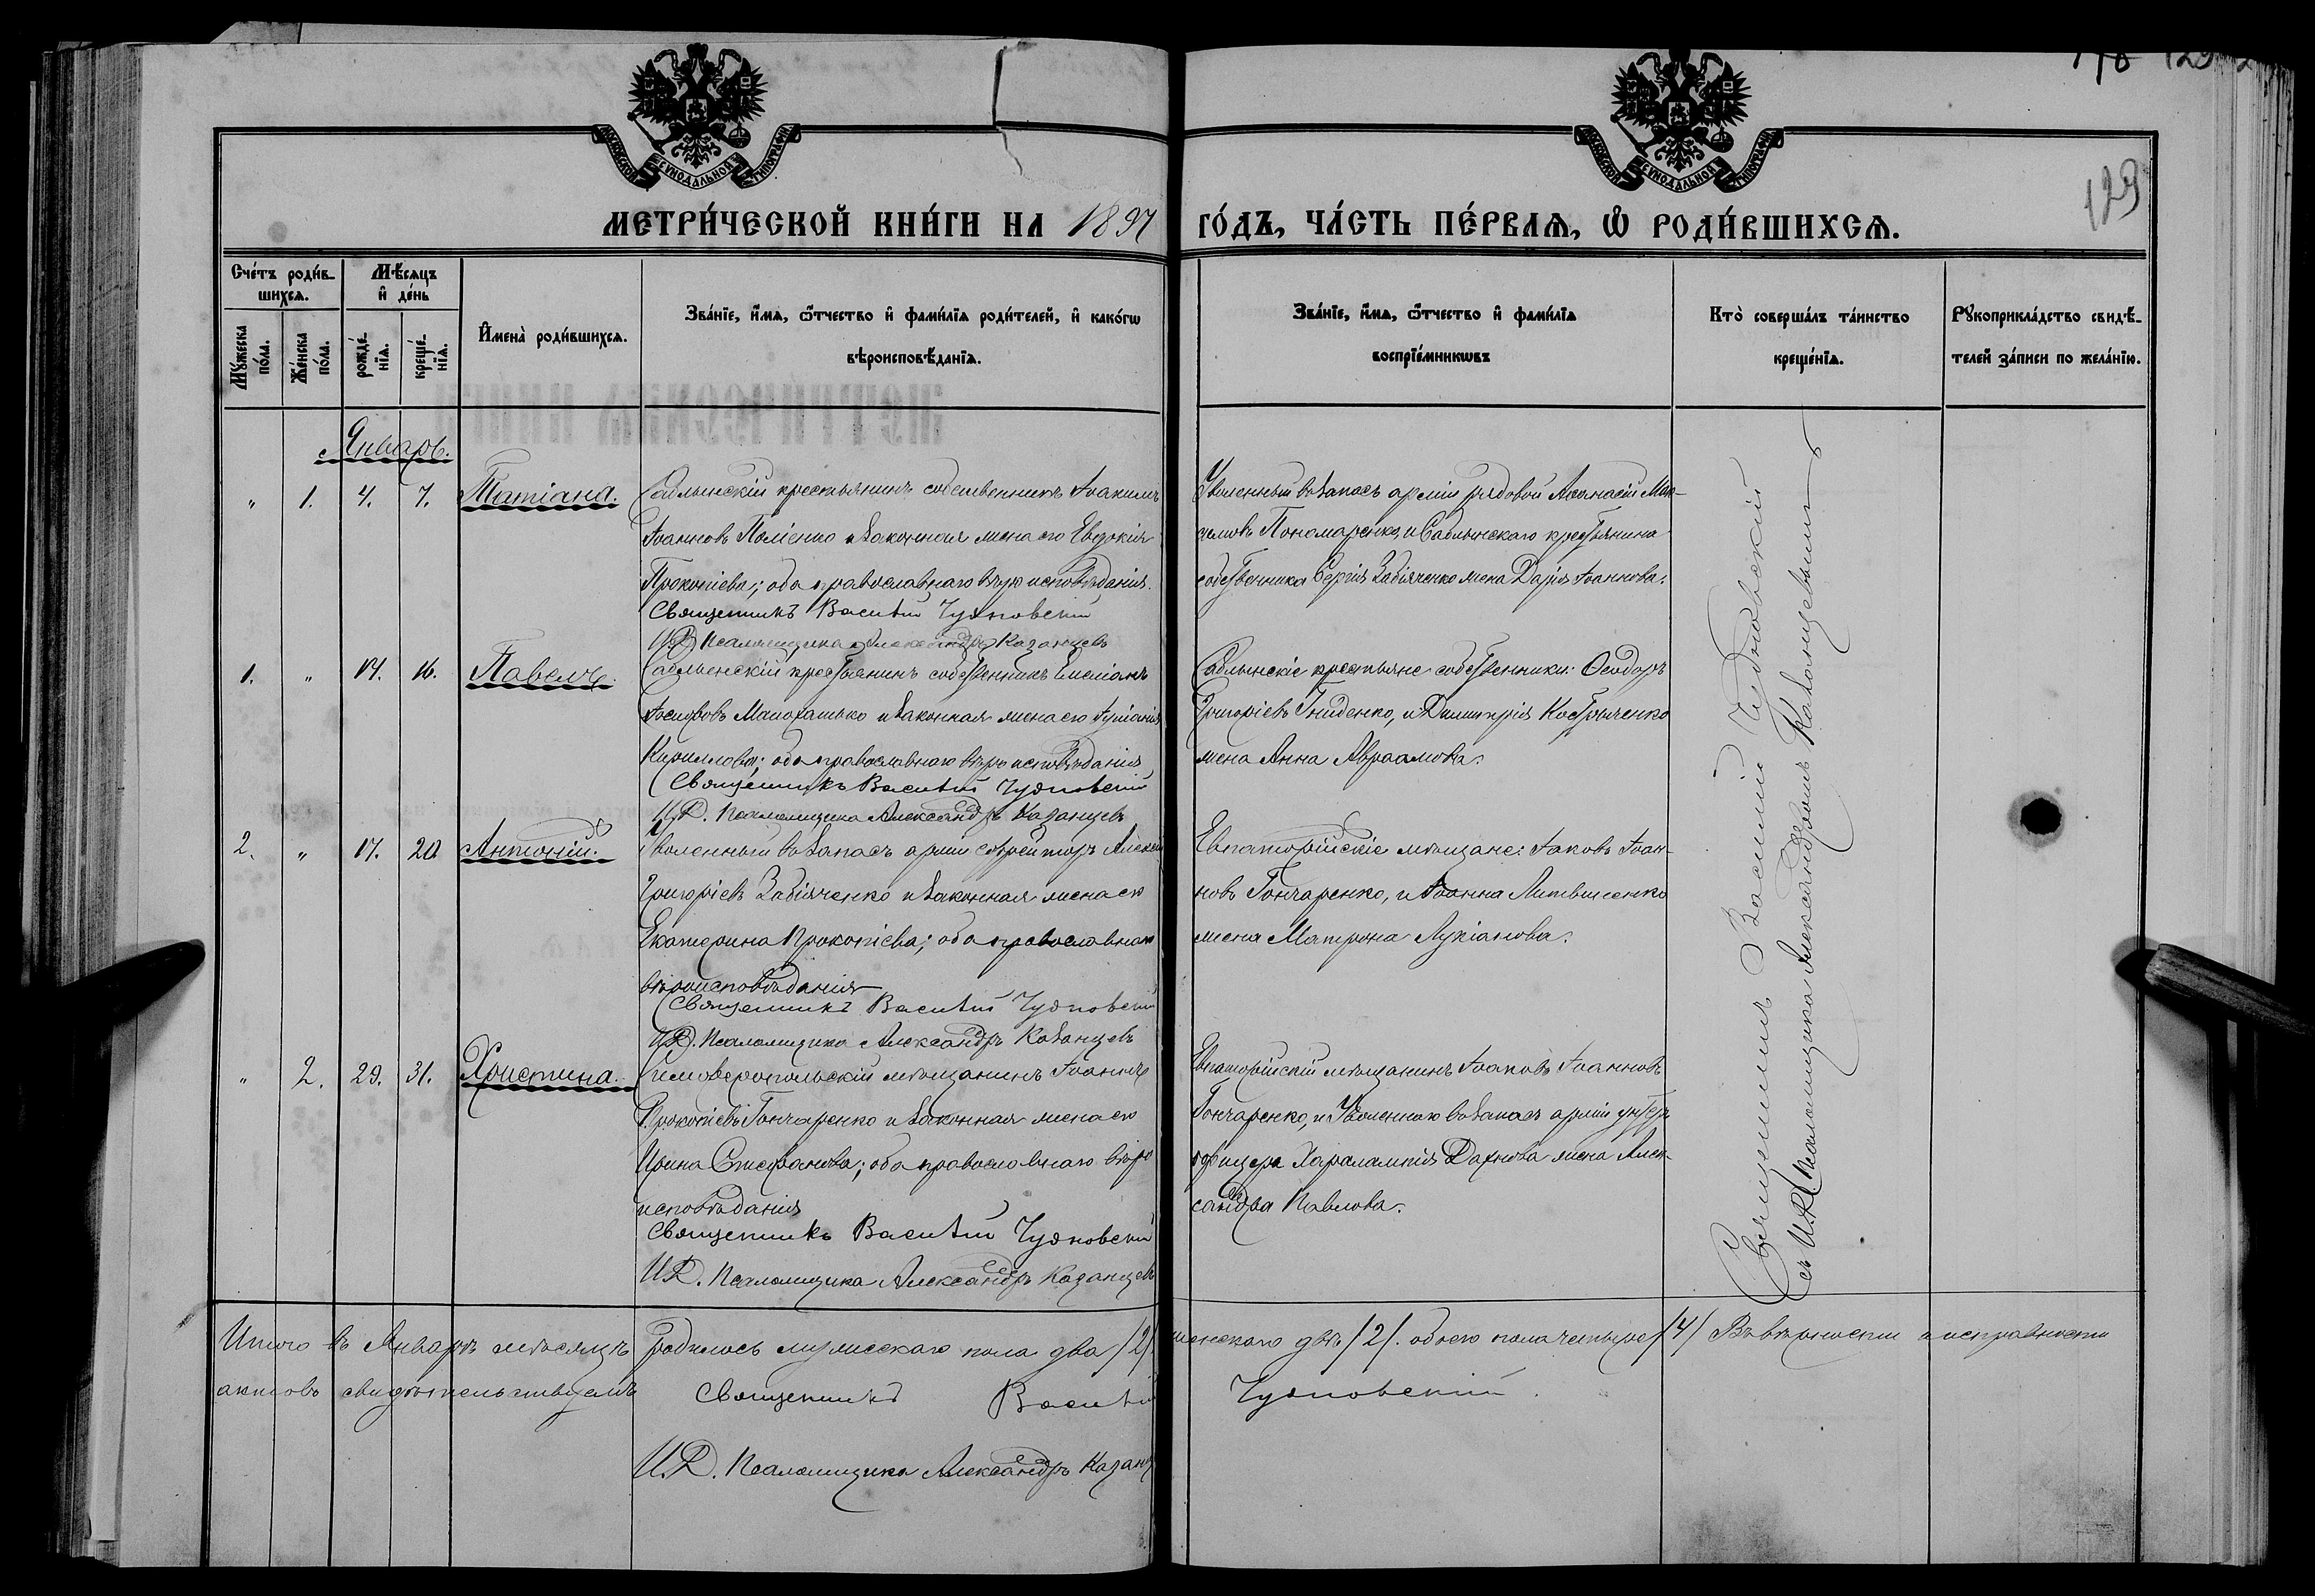 МОСКОВСКОЙ СѴНОДАЛЬНОЙ ТИПОГРАФІИ
МОСКОВСКОЙ СѴНОДАЛЬНОЙ ТИПОГРАФІИ
129
МЕТРИ́ЧЕСКОЙ КНИ́ГИ НА 1897 ГО́ДЪ, ЧА́СТЬ ПЕ́РВАѦ, Ѽ РОДИ́ВШИХСѦ.
Сче́тъ роди́в-
шихсѧ.
Мѣ́сѧцъ
и҆ де́нь
Мꙋ́жеска по́ла.
Же́нска по́ла.
рожде́-нїѧ.
креще́-нїѧ.
И҆мена̀ роди́вшихсѧ.
Зва́нїе, и҆́мѧ, ѻ҆́тчество и҆ фами́лїѧ роди́телей, и҆ како́гѡ
вѣроисповѣ́данїѧ.
Зва́нїе, и҆́мѧ, ѻ҆́тчество и҆ фами́лїѧ
воспрїе́мникѡвъ
Кто̀ соверша́лъ та́инство
креще́нїѧ.
Рꙋкоприкла́дство свидѣ́-
телей за́писи по жела́нїю.
Январь.
" 1. 4. 7. Татіана. Саблынскій крестьянинъ собственникъ Іоакимъ
Іоанновъ Поліенко и законная жена его Евдокія
Прокопіева; оба православнаго вѣроисповѣданія.
Священникъ Василій Чудновскій
И.Д. Псаломщика Александръ Казанцевъ
Уволенный въ запасъ арміи рядовой Аѳанасій Мак-
симовъ Пономаренко, и Саблынскаго крестьянина
собственника Сергія Забіяченко жена Дарія Іоаннова.
1. " 14. 16. Павелъ. Саблынскій крестьянинъ собственникъ Емеліанъ
Іосифовъ и законная жена его Іуліанія
Кириллова; оба православнаго вѣроисповѣданія
Священникъ Василій Чудновскій
И.Д. Псаломщика Александръ Казанцевъ
Саблынскіе крестьяне собственники: Ѳеодоръ
Григоріевъ Гниденко, и Димитрія Костриченко
жена Анна Авраамова.
2. " 17. 20 Антоній. Уволенный въ запасъ арміи ефрейторъ Алексій
Григоріевъ Забіяченко и законная жена его
Екатерина Прокопіева; оба православнаго
вѣроисповѣданія
Священникъ Василій Чудновскій
И.Д. Псаломщика Александръ Казанцевъ
Евпаторійскіе мѣщане: Іаковъ Іоан-
новъ Гончаренко, и Іоанна Литвиненко
жена Матрона Лукіанова.
" 2. 29. 31. Христина. Симферопольскій мѣщанинъ Іоаннъ
Прокопіевъ Гончаренко и законная жена его
Ирина Стефанова; оба православнаго вѣро
исповѣданія
Священникъ Василій Чудновскій
И.Д. Псаломщика Александръ Казанцевъ
Евпаторійскій мѣщанинъ Іаковъ Іоанновъ
Гончаренко, и Уволеннаго въ запасъ арміи унтеръ
офицера Харалампія Дахнова жена Алек-
сандра Павлова.
Священникъ Василій Чудновскій
съ И.Д. Псаломщика Александромъ Казанцевымъ
Итого въ Январѣ мѣсяцѣ родилось мужескаго пола два /2/ женскаго двѣ /2/. обоего пола четыре /4/ Въ вѣрности и исправности
актовъ свидѣтельствуемъ Священникъ Василій Чудновскій.
И.Д. Псаломщика Александръ Казанц